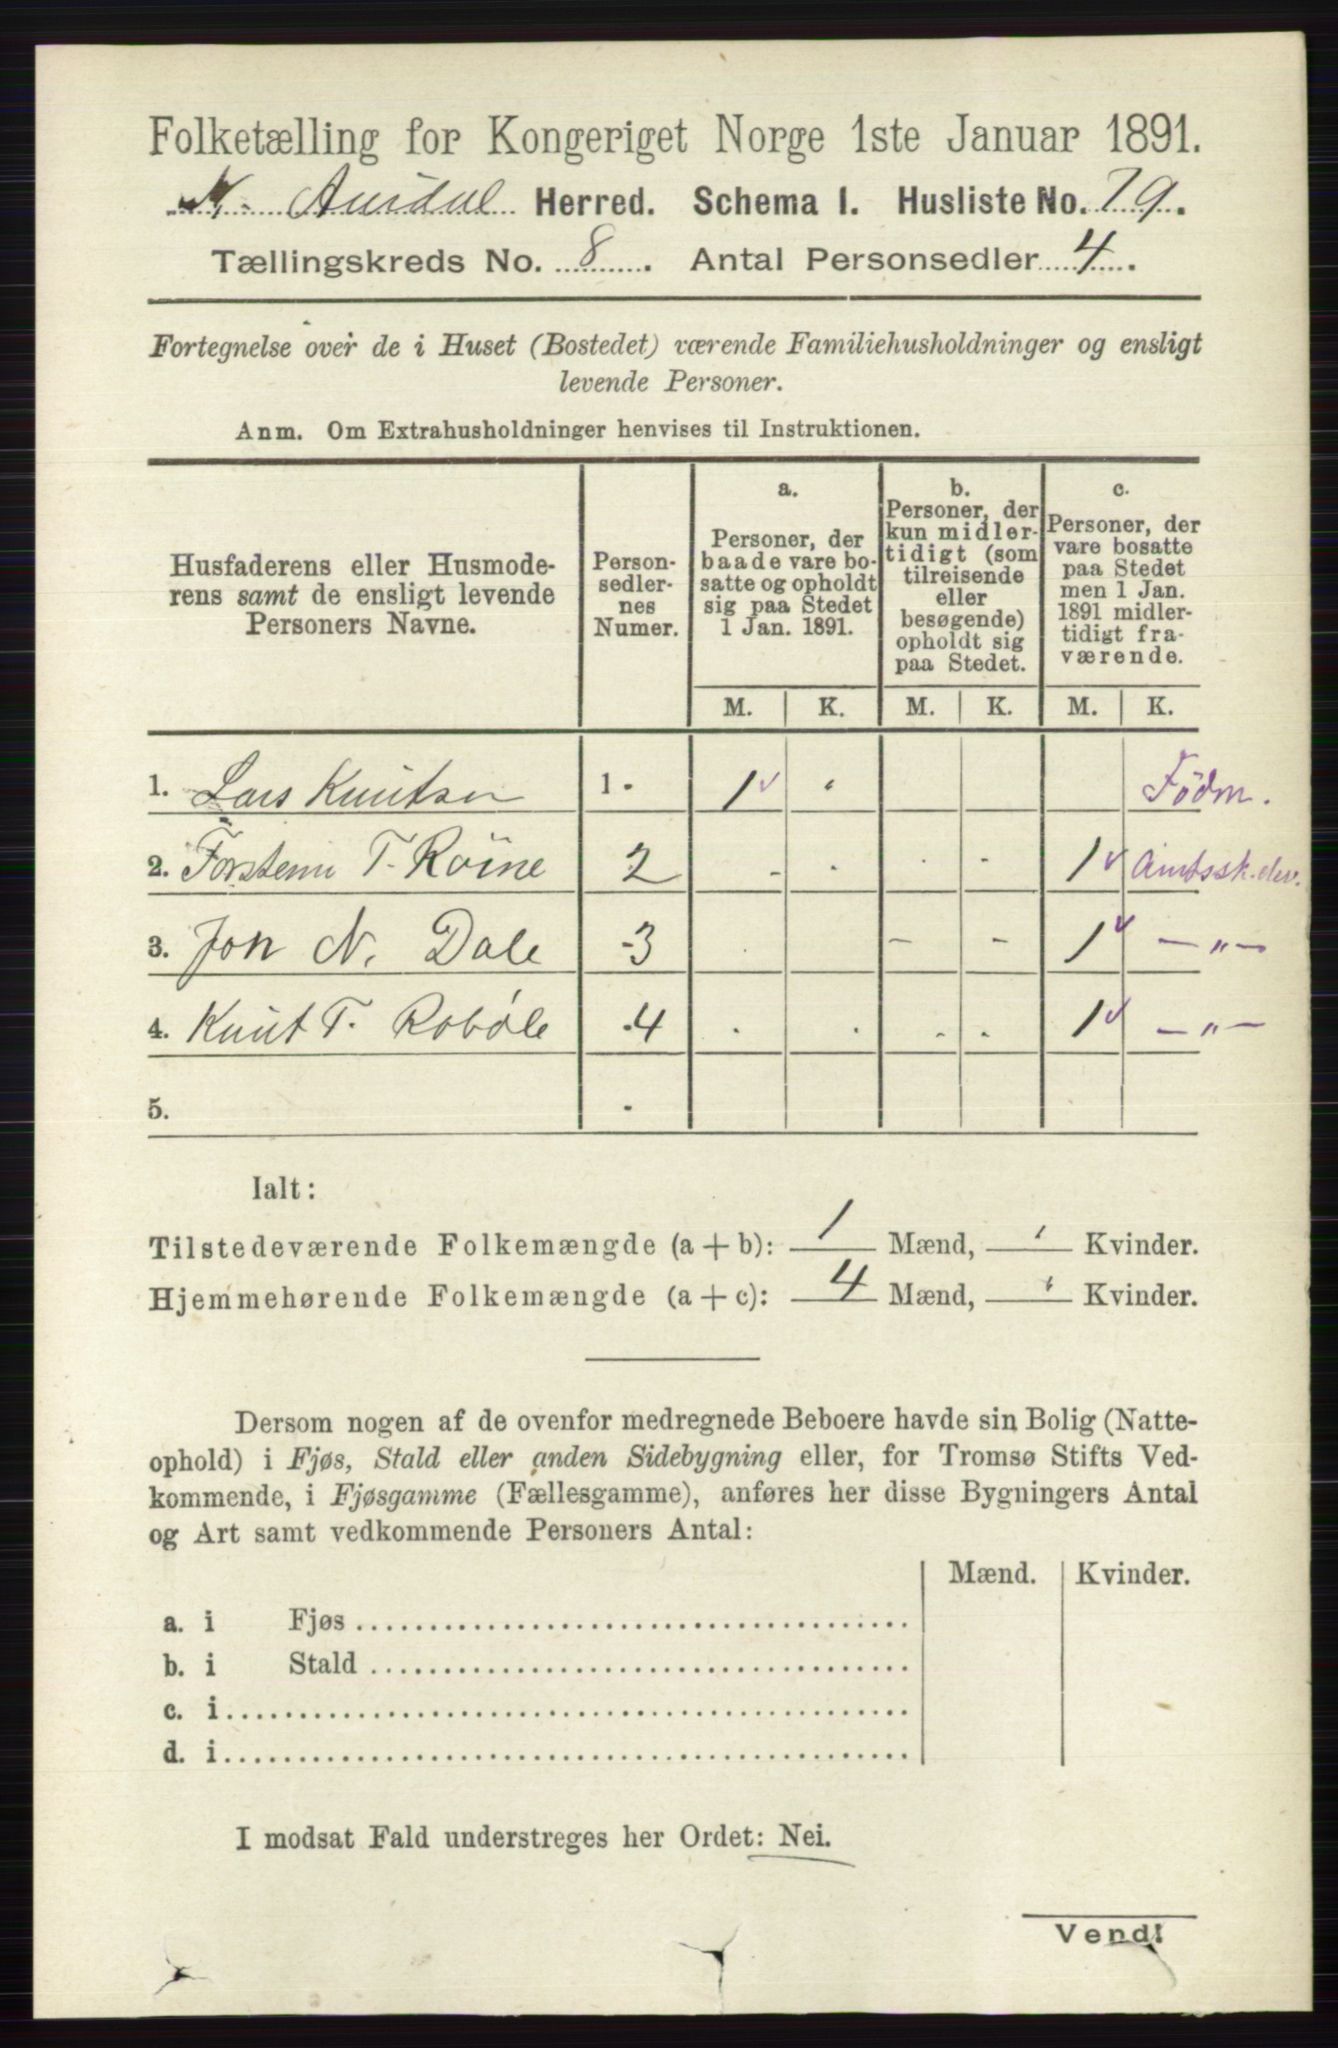 Folketælling for Kongeriget Norge 1ste Januar 1891.
N. Aurdal Herred. Schema I. Husliste No. 79.
Tællingskreds No. 8. Antal Personsedler 4.
Fortegnelse over de i Huset (Bostedet) værende Familiehusholdninger og ensligt
levende Personer.
Anm. Om Extrahusholdninger henvises til Instruktionen.
Husfaderens eller Husmode-
rens samt de ensligt levende
Personers Navne.
Person-
sedler-
nes
Numer.
a.
Personer, der
baade vare bo-
satte og opholdt
sig paa Stedet
1 Jan. 1891.
b.
Personer, der
kun midler-
tidigt (som
tilreisende
eller
besøgende)
opholdt sig
paa Stedet.
c.
Personer, der
vare bosatte
paa Stedet
men 1 Jan.
1891 midler-
tidigt fra-
værende.
M. K. M. K. M. K.
1. Lars Knutsen 1 - 1 Födm.
2. Torstein T. Röine 2 - - 1 Amtssk.elev.
3. Jon N. Dale -3 - - 1 -"-
4. Knut T. Robøle 4 1 -"-
5.
Ialt:
Tilstedeværende Folkemængde (a + b): 1 Mænd, Kvinder.
Hjemmehørende Folkemængde (a + c): 4 Mænd, Kvinder.
Dersom nogen af de ovenfor medregnede Beboere havde sin Bolig (Natte-
ophold) i Fjøs, Stald eller anden Sidebygning eller, for Tromsø Stifts Ved-
kommende, i Fjøsgamme (Fællesgamme), anføres her disse Bygningers Antal
og Art samt vedkommende Personers Antal:
Mænd. Kvinder.
a. i Fjøs
b. i Stald
c. i
d. i
I modsat Fald understreges her Ordet: Nei.
Vend!